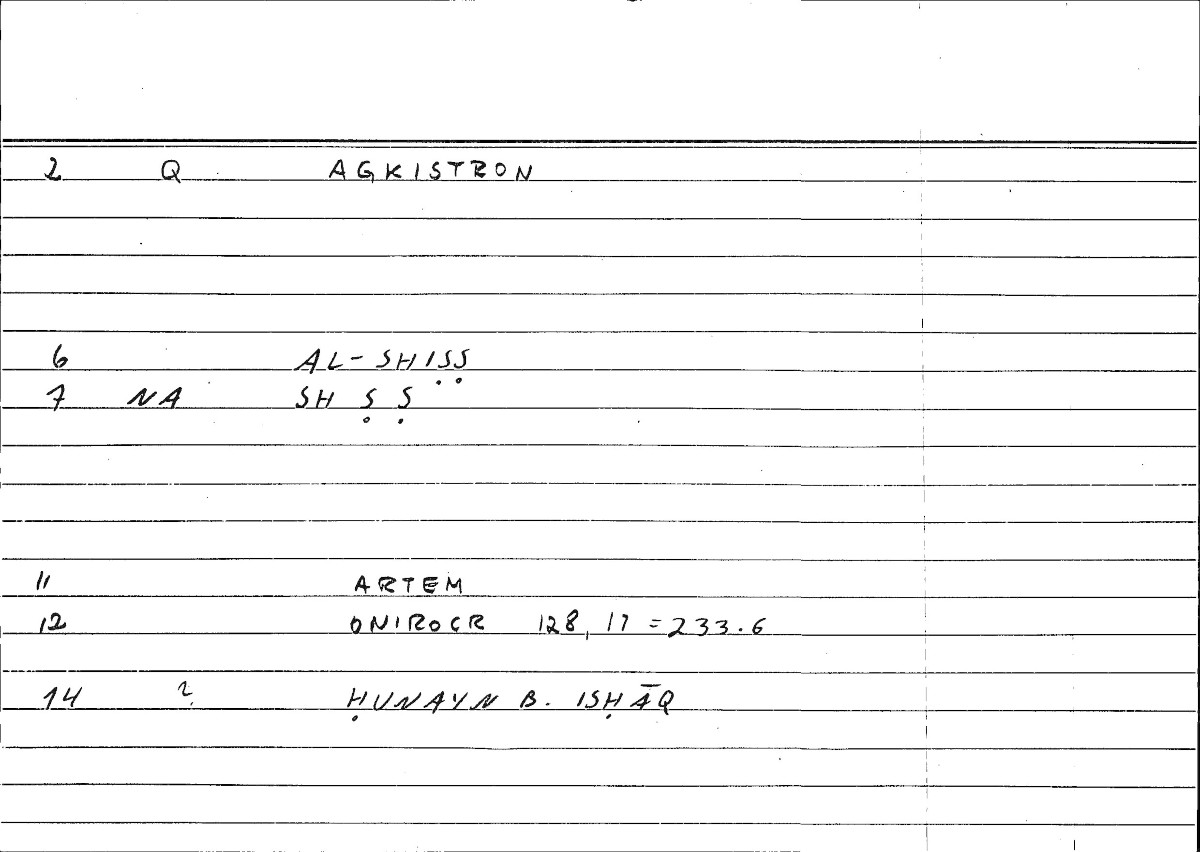 2 Q AGKISTRON
6 AL-SHIṢṢ
7 NA SH Ṣ Ṣ
11 ARTEM
12 ONIROCR 128, 17 = 233.6
14 ? ḤUNAYN B. ISḤĀQ